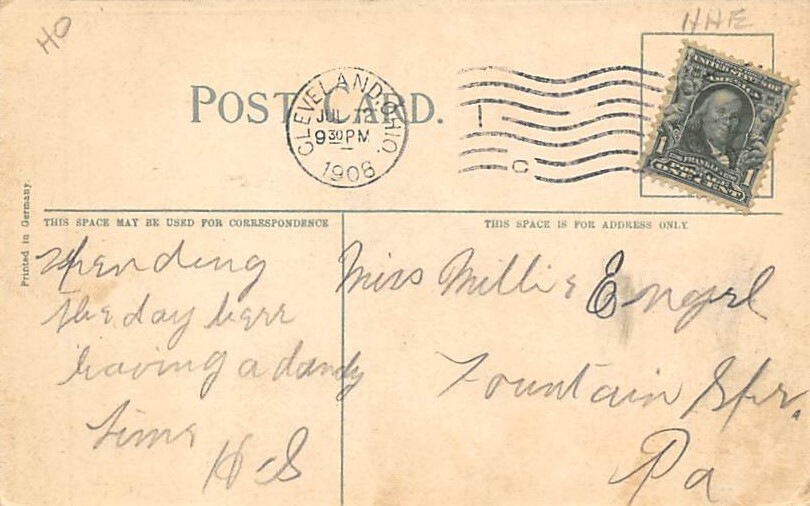 HO
HHE
POST CARD.
CLEVELAND, OHIO.
JUL 2
9 30 PM
1908
1
C
UNITED STATES OF
AMERICA
FRANKLIN
POSTAGE
1 ONE CENT 1
Printed in Germany.
THIS SPACE MAY BE USED FOR CORRESPONDENCE
THIS SPACE IS FOR ADDRESS ONLY.
Spending
the day here
having a dandy
time
H.S
Miss Millie Engel
Fountain Spr.
Pa